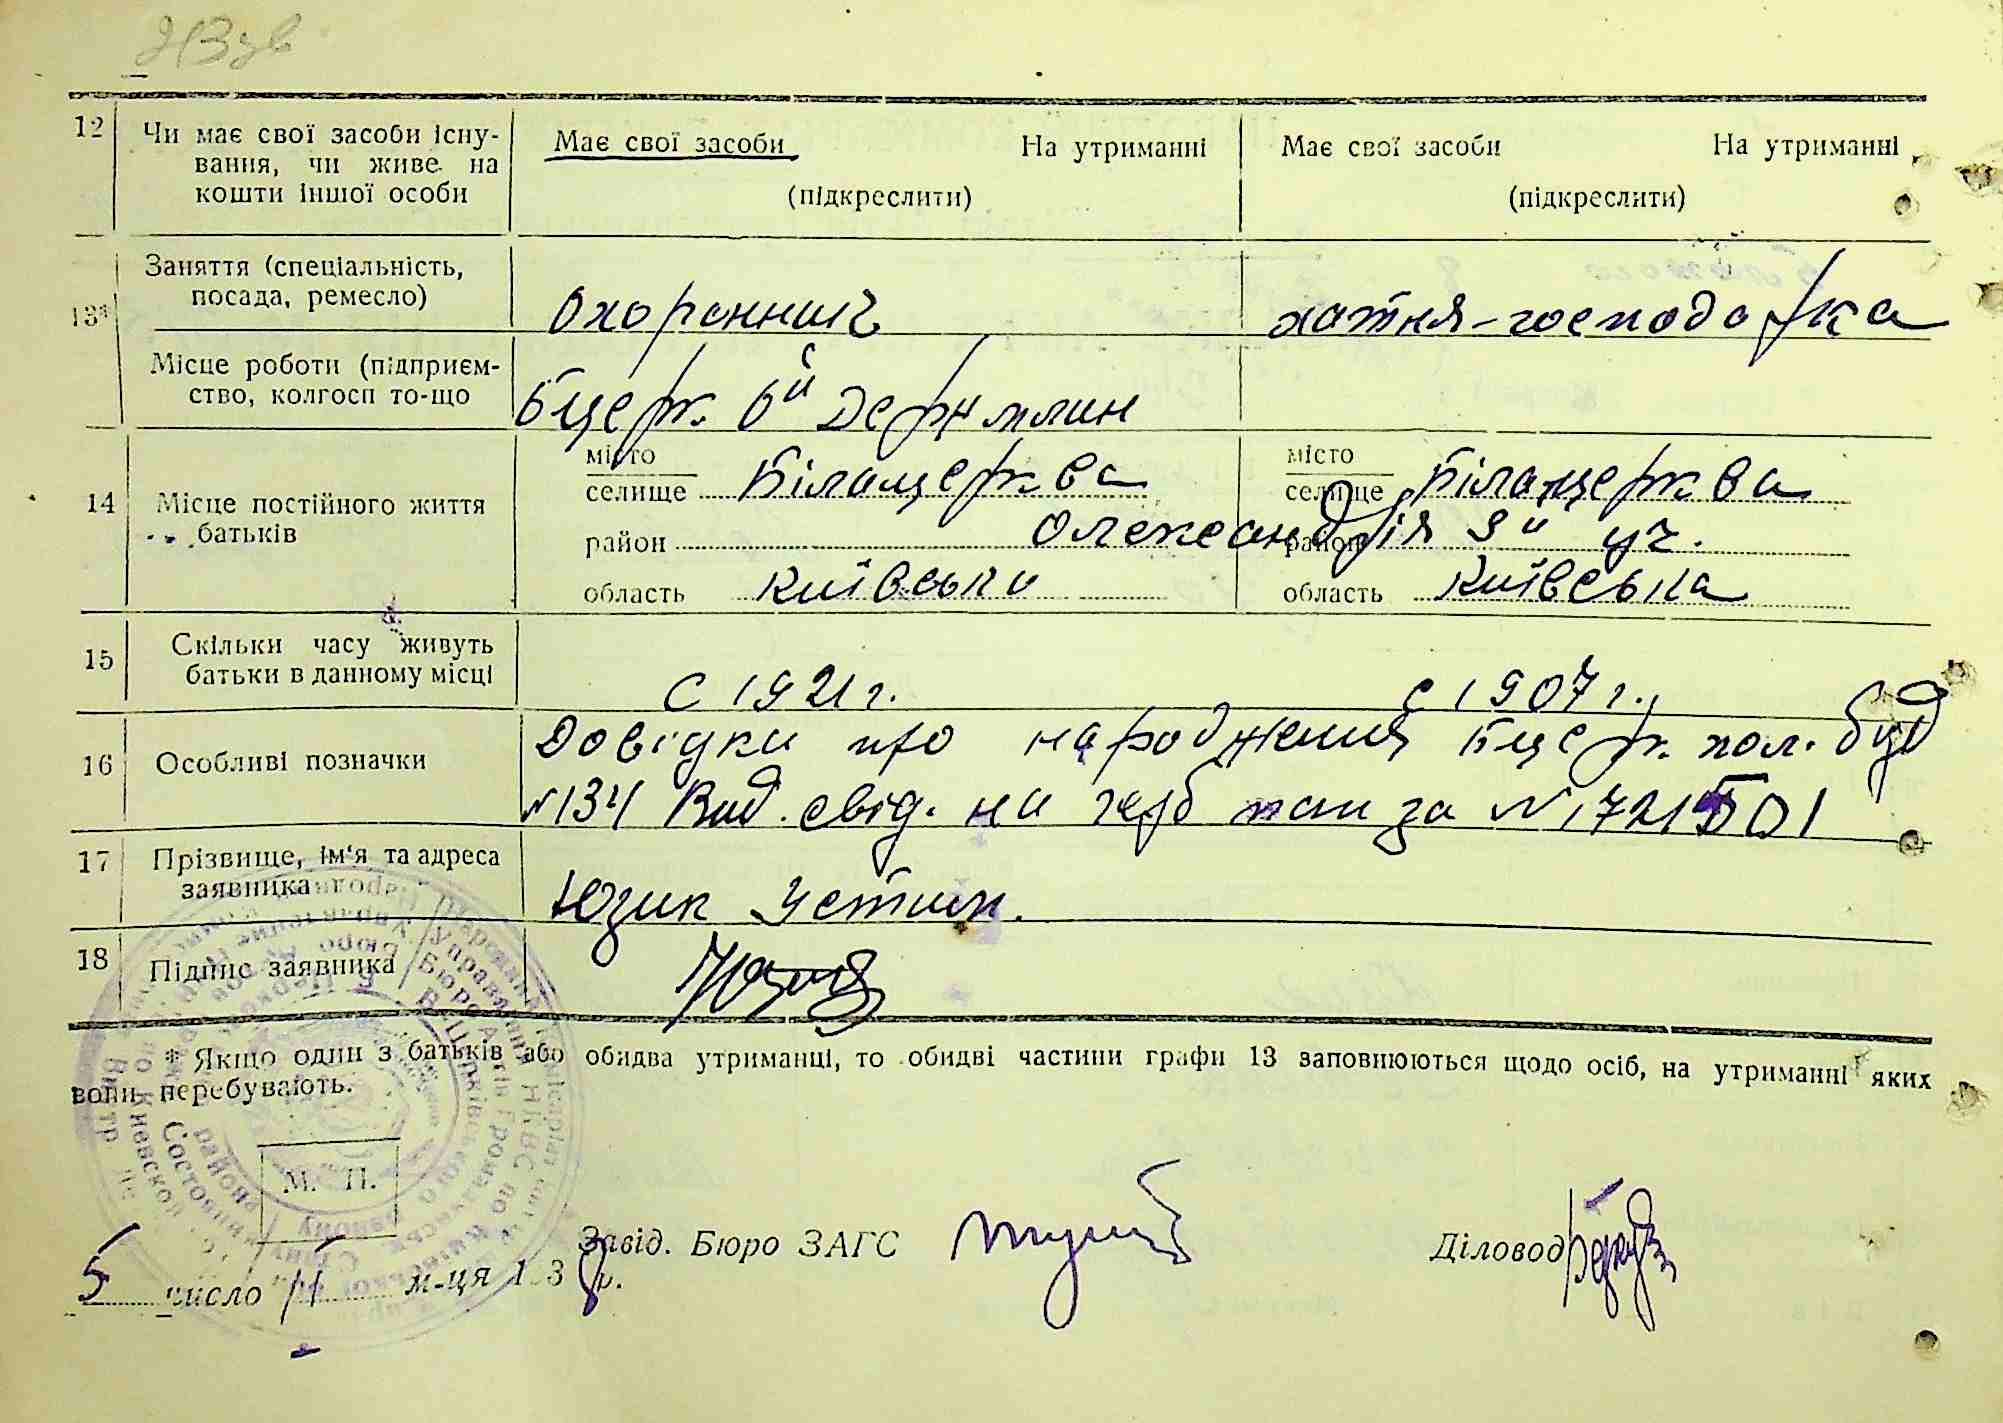 12 Чи має свої засоби існу-
вання, чи живе на
кошти іншої особи
Має свої засоби На утриманні
(підкреслити)
Має свої засоби На утриманні
(підкреслити)
13*
Заняття (спеціальність,
посада, ремесло)
Охоронник
хатня-господарка
Місце роботи (підприєм-
ство, колгосп то-що
Бцерк. 6й Держмлин
14 Місце постійного життя
батьків
місто
селище Білацерква
район
область Київська
місто
селище Білацерква
район
Олександрія 9й уч.
область Київська
15 Скільки часу живуть
батьки в данному місці
с 1921 г.
с 1907 г.
16 Особливі позначки
Довідки про народження Бцерк. пол. буд
N 134 Вид. свід. на герб пап за N 172
17 Прізвище, ім'я та адреса
заявника
Юзик Устим.
18 Підпис заявника
* Якщо один з батьків або обидва утриманці, то обидві частини графи 13 заповнюються щодо осіб, на утриманні яких
вони перебувають.
М. П.
5 число 11 м-ця 193 р.
Завід. Бюро ЗАГС
Діловод